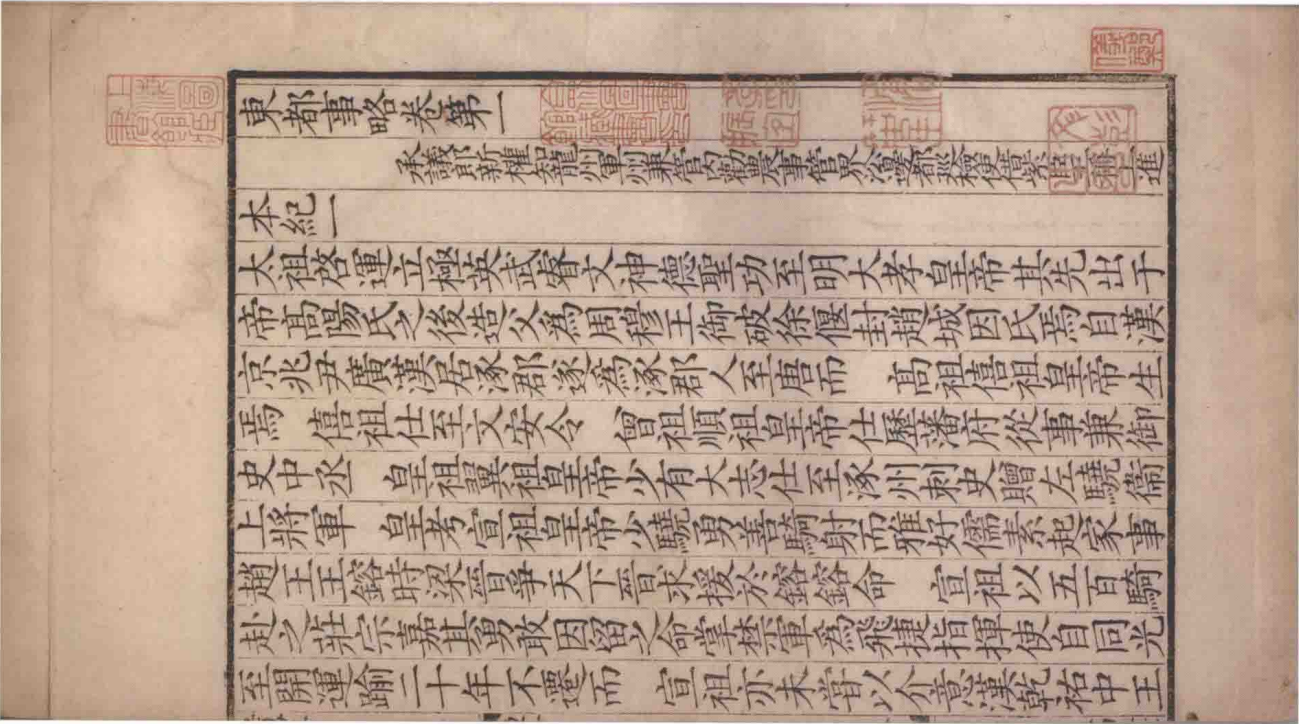 東都事略卷第一
承議郎新權知龍州軍州兼管內勸農事管界沿邊都巡檢使借紫臣王稱上進
本紀一
太祖啓運立極英武睿文神德聖功至明大孝皇帝其先出于
帝高陽氏之後造父為周穆王御破徐偃封趙城因氏焉自漢
京兆尹廣漢居涿郡遂為涿郡人至唐而 高祖僖祖皇帝生
焉 僖祖仕至文安令 曾祖順祖皇帝仕歷藩府從事兼御
史中丞 皇祖翼祖皇帝少有大志仕至涿州刺史贈左驍衞
上將軍 皇考宣祖皇帝少驍勇善騎射而雅好儒素起家事
趙王王鎔時梁晉爭天下晉求援於鎔鎔命 宣祖以五百騎
赴之莊宗嘉其勇敢因留之命掌禁軍為飛捷指揮使自同光
至開運踰二十年不遷而 宣祖亦未嘗以介意漢乾祐中王